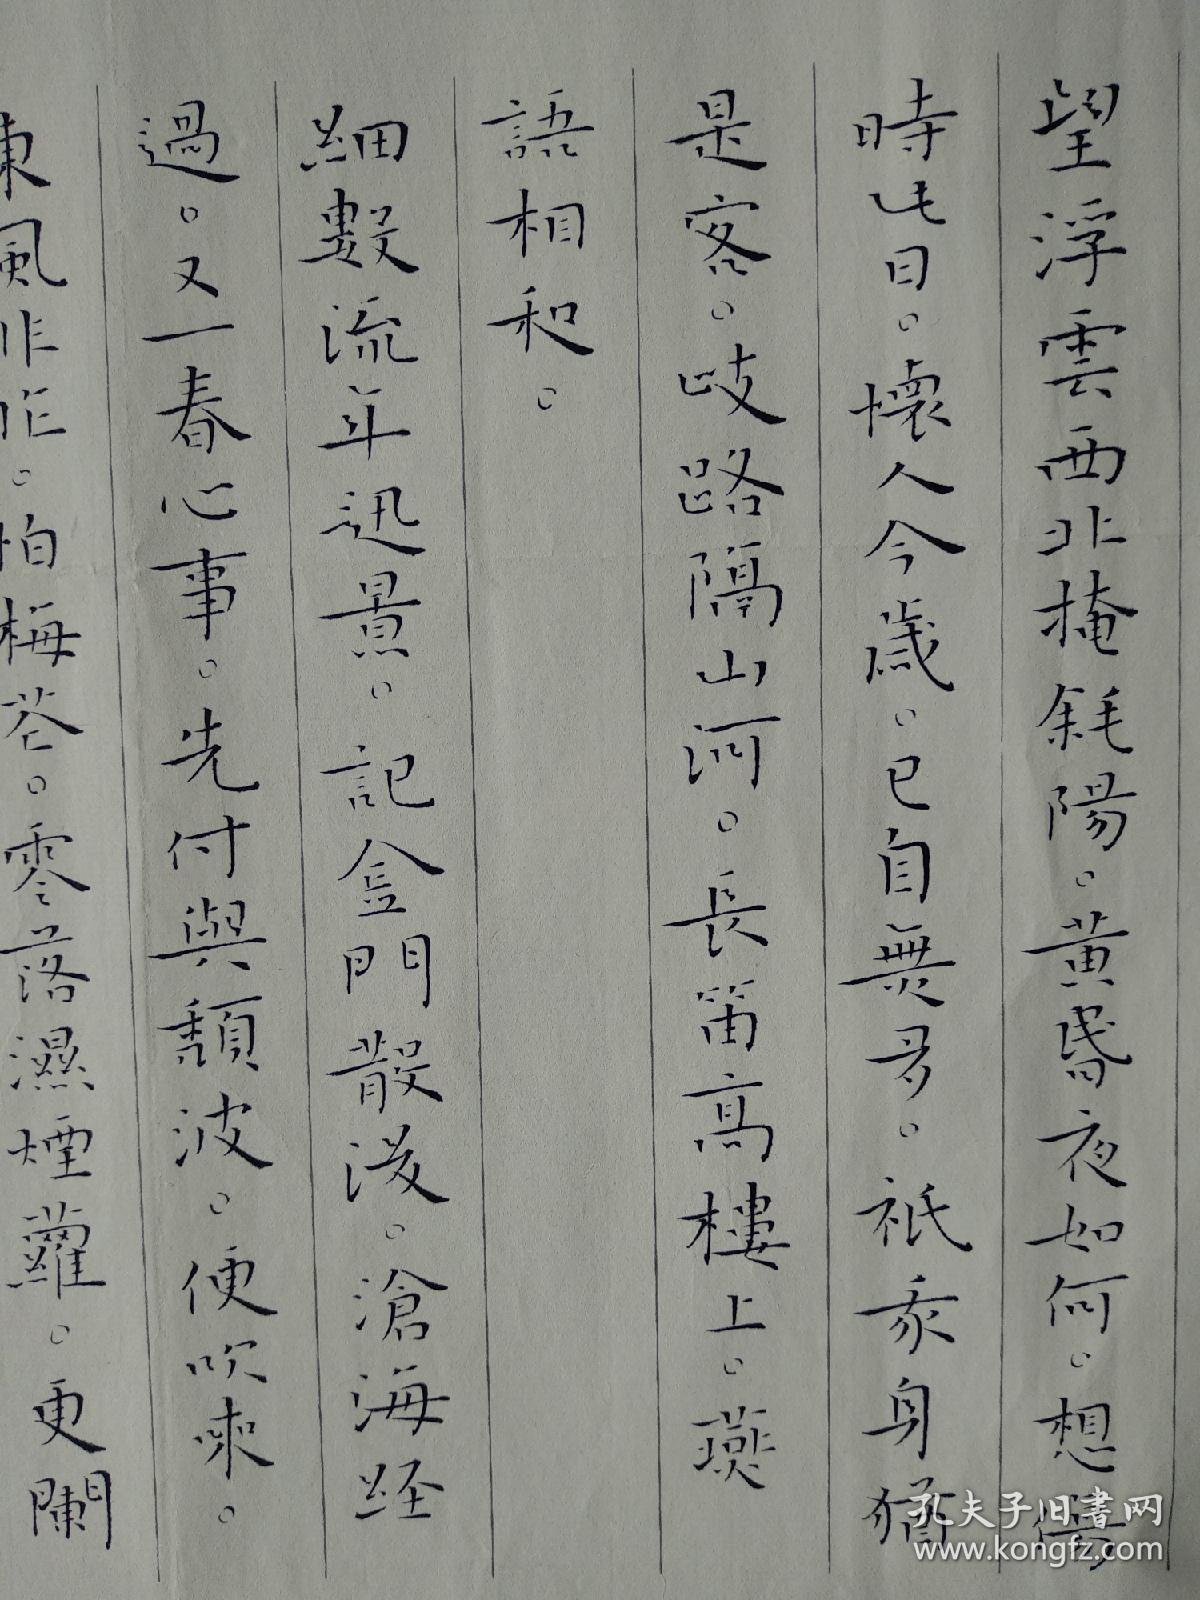 望浮雲西北掩斜陽。黃昏夜如何。想當
時此日。懷人今歲。已自無多。祇家身猶
是客。歧路隔山河。長笛高樓上。燕
語相和。
細數流年迅景。記金門散後。滄海經
過。又一春心事。先付與頹波。便吹來。
東風非昨。怕梅花。零落濕煙蘿。更闌
孔夫子旧書网
www.kongfz.com